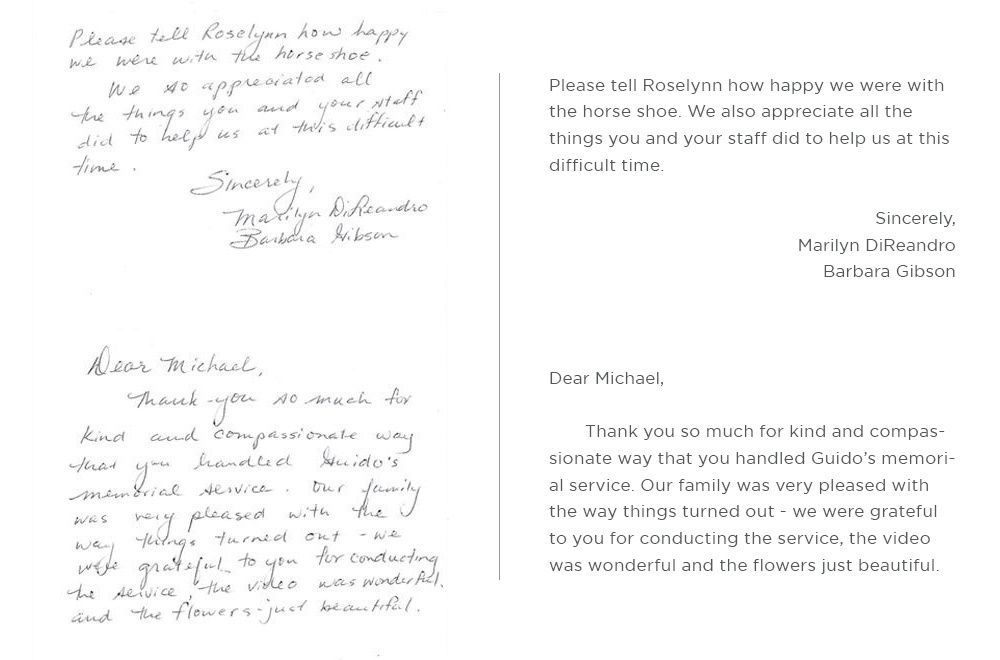 Please tell Roselynn how happy
we were with the horse shoe.
We so appreciated all
the things you and your staff
did to help us at this difficult
time.
Sincerely,
Marilyn DiReandro
Barbara Gibson
Dear Michael,
Thank-you so much for
kind and compassionate way
that you handled Guido's
memorial service. Our family
was very pleased with the
way things turned out - we
were grateful to you for conducting
the service, the video was wonderful
and the flowers - just beautiful.
Please tell Roselynn how happy we were with
the horse shoe. We also appreciate all the
things you and your staff did to help us at this
difficult time.
Sincerely,
Marilyn DiReandro
Barbara Gibson
Dear Michael,
Thank you so much for kind and compas-
sionate way that you handled Guido’s memori-
al service. Our family was very pleased with
the way things turned out - we were grateful
to you for conducting the service, the video
was wonderful and the flowers just beautiful.